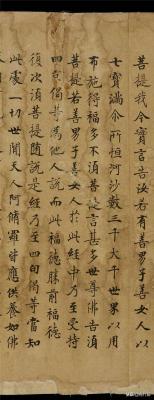 菩提我今實言告汝若有善男子善女人以
七寶滿尒所恒河沙數三千大千世界以用
布施得福多不須菩提言甚多世尊佛告須
菩提若善男子善女人於此經中乃至受持
四句偈等為他人說而此福德勝前福德
復次須菩提隨說是經乃至四句偈等當知
此處一切世間天人阿脩羅皆應供養如佛